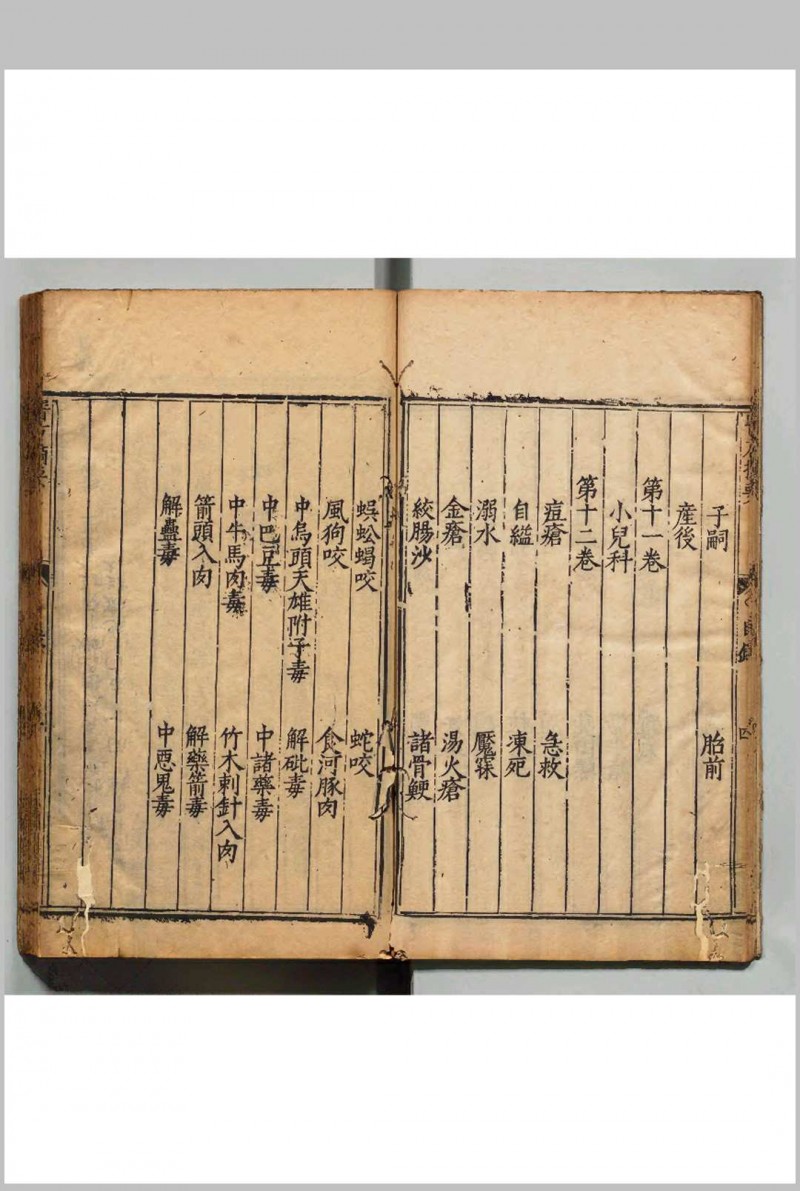 子嗣 胎前
産後
第十一卷
小兒科
第十二卷
痘瘡 急救
自縊 凍死
溺水 魘寐
金瘡 湯火瘡
絞腸沙 諸骨鯁
蜈蚣蝎咬 蛇咬
風狗咬 食河豚肉
中烏頭天雄附子毒 解砒毒
中巴豆毒 中諸藥毒
中牛馬肉毒 竹木刺針入肉
箭頭入肉 解藥箭毒
解蠱毒 中惡鬼毒
目錄
四